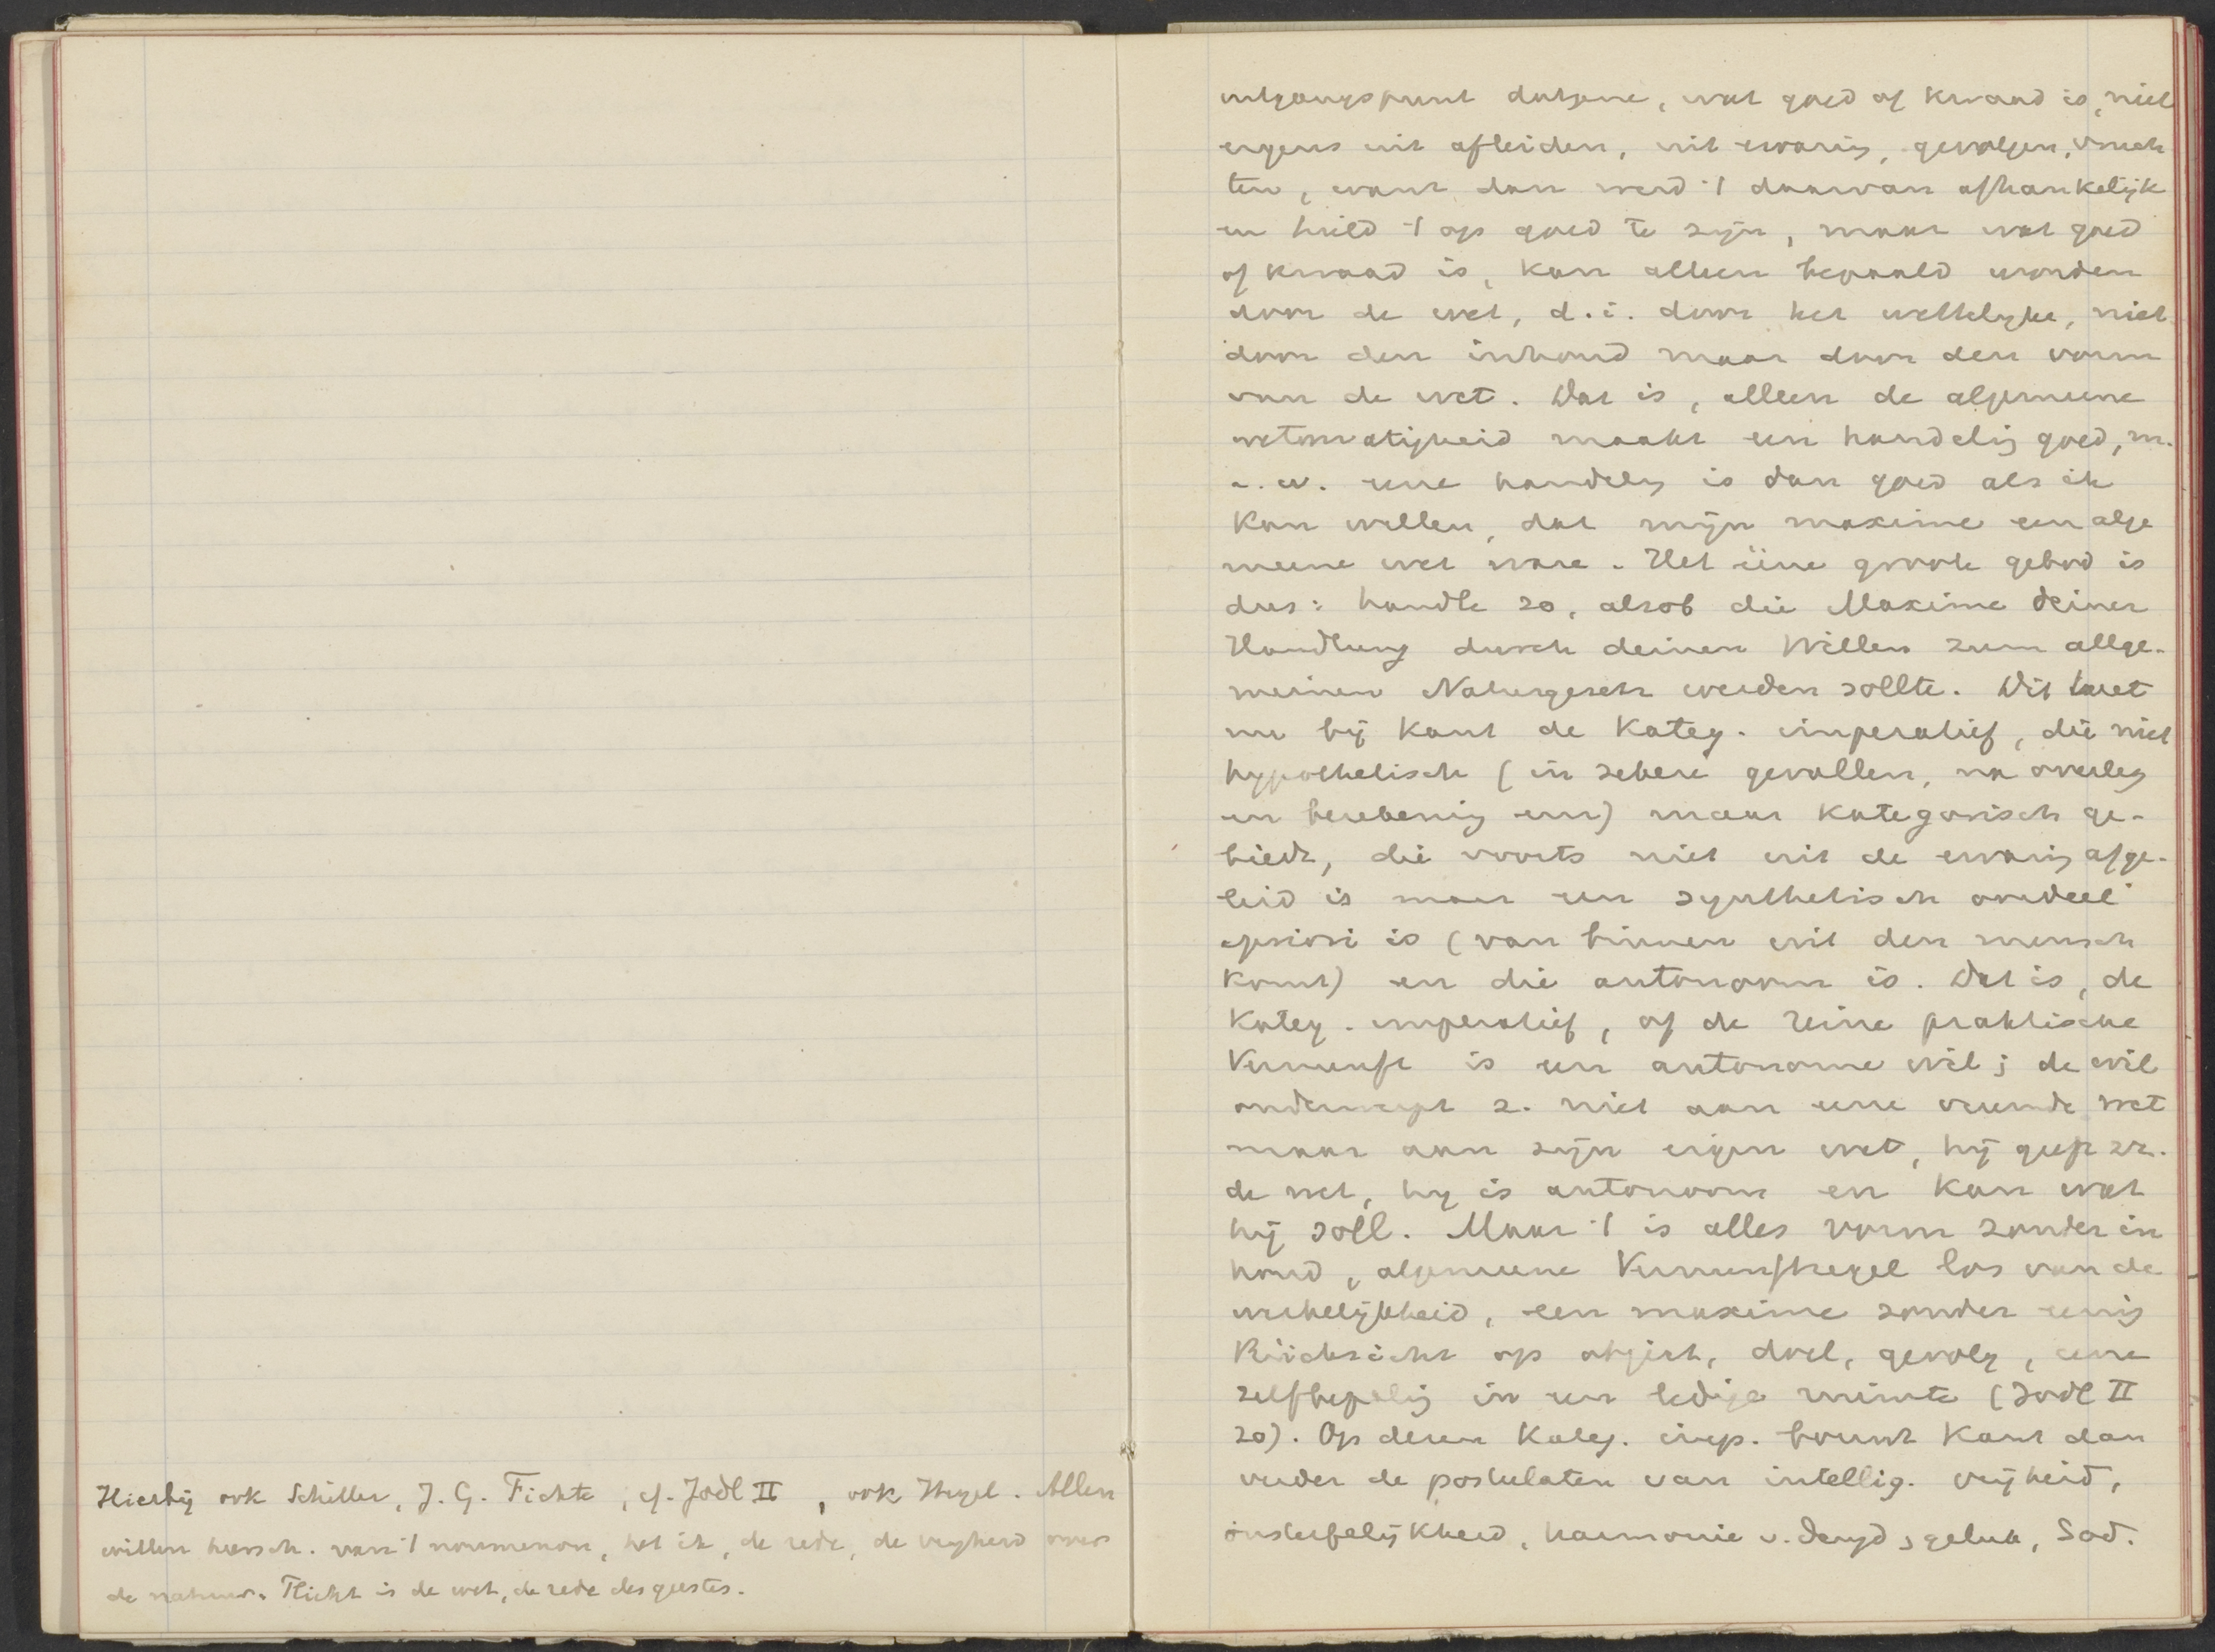 Hierbij ook Schiller, J. G. Fichte, cf. Jodl II, ook Hegel. Allen
willen heersch. van 't noumenon, het ik, de rede, de vrijheid over
de natuur. Plicht is de wet, de rede des geestes.
uitgangspunt datgene, wat goed of kwaad is, niet
ergens uit afleiden, uit ervaring, gevolgen, vruch
ten, want dan werd 't daarvan afhankelijk
en hield 't op goed te zijn, maar wat goed
of kwaad is, kan alleen bepaald worden
door de wet, d.i. door het wettelyke, niet
door den inhoud maar door den vorm
van de wet. Dat is, alleen de algemeene
wetmatigheid maakt een handelig goed, m.
a.w. eene handelig is dan goed als ik
kan willen, dat mijn maxime een alge
meene wet ware. Het ééne groote gebod is
dus: handle so, alsob die Maxime deiner
Handlung durch deinen Willen zum allge-
meinen Naturgesetz werden sollte. Dit heet
nu bij Kant de kateg. imperatief, die niet
hypothetisch (in zekere gevallen, na overleg
en berekening enz) maar kategorisch ge-
biedt, die voorts niet uit de ervaring afge-
leid is maar een synthetisch oordeel
apriori is (van binnen uit den mensch
komt) en die autonoom is. Dat is, de
kateg. imperatief, of de reine praktische
Vernunft is een autonome wil; de wil
onderwerpt z. niet aan eene vreemde wet
maar aan zijn eigen wet, hij geeft zz.
de wet, hy is autonoom en kan wat
hij soll. Maar 't is alles vorm zonder in
houd, algemeene Vernunftregel los van de
werkelijkheid, een maxime zonder eenig
Rücksicht op object, doel, gevolg, eene
zelfbepalig in een ledige ruimte (Jodl II
20). Op dezen kateg. imp. bouwt Kant dan
verder de postulaten van intellig. vrijheid,
onsterfelijkheid, harmonie v. deugd, geluk, God.